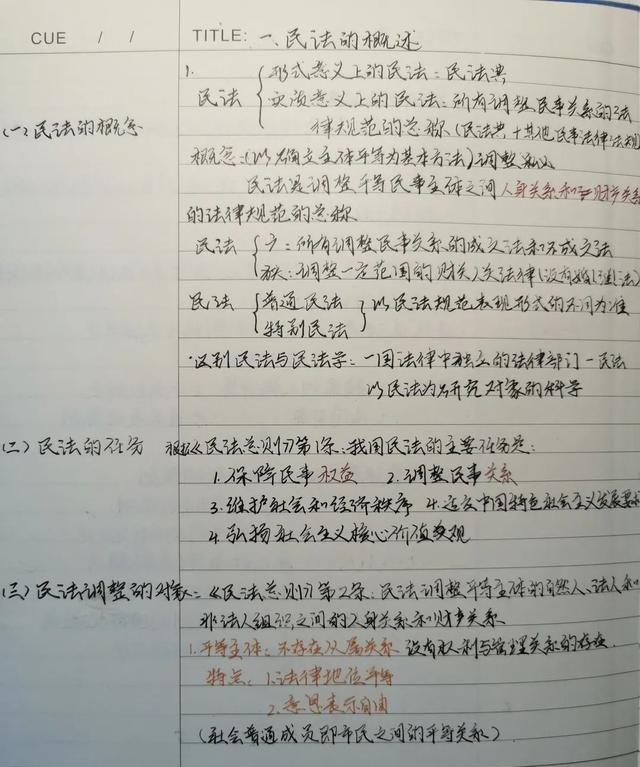 CUE / / TITLE: 一、民法的概述
1.
形式意义上的民法：民法典
民法
实质意义上的民法：所有调整民事关系的法
(一)民法的概念
律规范的总称(民法典+其他民事法律法规)
概念：(以确立主体平等为基本方法)调整
民法是调整平等民事主体之间人身关系和财产关系
的法律规范的总称
民法
广：所有调整民事关系的成文法和不成文法
狭：调整一定范围的财关人关法律
民法
普通民法
特别民法
以民法规范表现形式的不同为准
·区别民法与民法学：一国法律中独立的法律部门—民法
以民法为研究对象的科学
(二)民法的任务 根据《民法总则》第1条：我国民法的主要任务是：
1.保障民事权益 2.调整民事关系
3.维护社会和经济秩序 4.适应中国特色社会主义发展要求
4.弘扬社会主义核心价值观
(三)民法调整的对象：《民法总则》第2条：民法调整平等主体的自然人、法人和
非法人组织之间的人身关系和财产关系
1.平等主体：不存在从属关系 没有权利与管理关系的存在
特点：1.法律地位平等
2.意思表示自由
(社会普通成员即市民之间的平等关系)